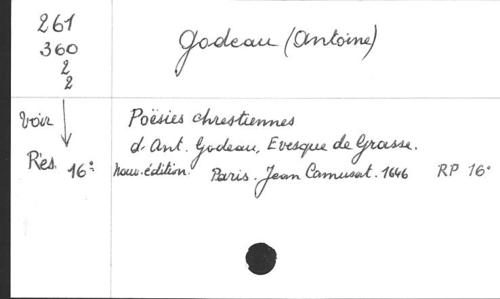 261
360
2
2
Godeau (Antoine)
voir
Poësies chrestiennes
d'Ant. Godeau, Evesque de Grasse.
Rés. 16º
Nouv. édition. Paris. Jean Camusat. 1646 RP 16º